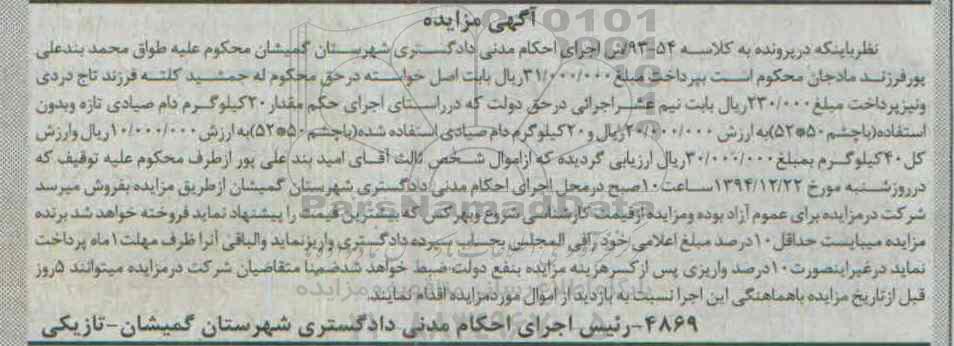 آگهی مزایده
نظرباینکه درپرونده به کلاسه ۵۴-۹۳/ش اجرای احکام مدنی دادگستری شهرستان گمیشان محکوم علیه طواق محمد بندعلی
پورفرزند مادجان محکوم است بپرداخت مبلغ ۳۱/۰۰۰/۰۰۰ریال بابت اصل خواسته درحق محکوم له جمشید کلته فرزند تاج دردی
ونیزپرداخت مبلغ ۲۳۰/۰۰۰ریال بابت نیم عشراجرائی درحق دولت که درراستای اجرای حکم مقدار ۲۰کیلوگرم دام صیادی تازه وبدون
استفاده(باچشم ۵۰*۵۲)به ارزش ۲۰/۰۰۰/۰۰۰ریال و ۲۰کیلوگرم دام صیادی استفاده شده(باچشم ۵۰*۵۲)به ارزش ۱۰/۰۰۰/۰۰۰ریال وارزش
کل ۴۰کیلوگرم بمبلغ ۳۰/۰۰۰/۰۰۰ریال ارزیابی گردیده که ازاموال شخص ثالث آقای امید بند علی پور ازطرف محکوم علیه توقیف که
درروزشنبه مورخ ۱۳۹۴/۱۲/۲۲ساعت ۱۰صبح درمحل اجرای احکام مدنی دادگستری شهرستان گمیشان ازطریق مزایده بفروش میرسد
شرکت درمزایده برای عموم آزاد بوده ومزایده ازقیمت کارشناسی شروع وبهرکس که بیشترین قیمت را پیشنهاد نماید فروخته خواهد شد برنده
مزایده میبایست حداقل ۱۰درصد مبلغ اعلامی خود رافی المجلس بحساب سپرده دادگستری واریزنماید والباقی آنرا ظرف مهلت ۱ماه پرداخت
نماید درغیراینصورت ۱۰درصد واریزی پس ازکسرهزینه مزایده بنفع دولت ضبط خواهد شدضمنا متقاضیان شرکت درمزایده میتوانند ۵روز
قبل ازتاریخ مزایده باهماهنگی این اجرا نسبت به بازدید از اموال موردمزایده اقدام نمایند.
۴۸۶۹-رئیس اجرای احکام مدنی دادگستری شهرستان گمیشان-تازیکی
ParsNamadData